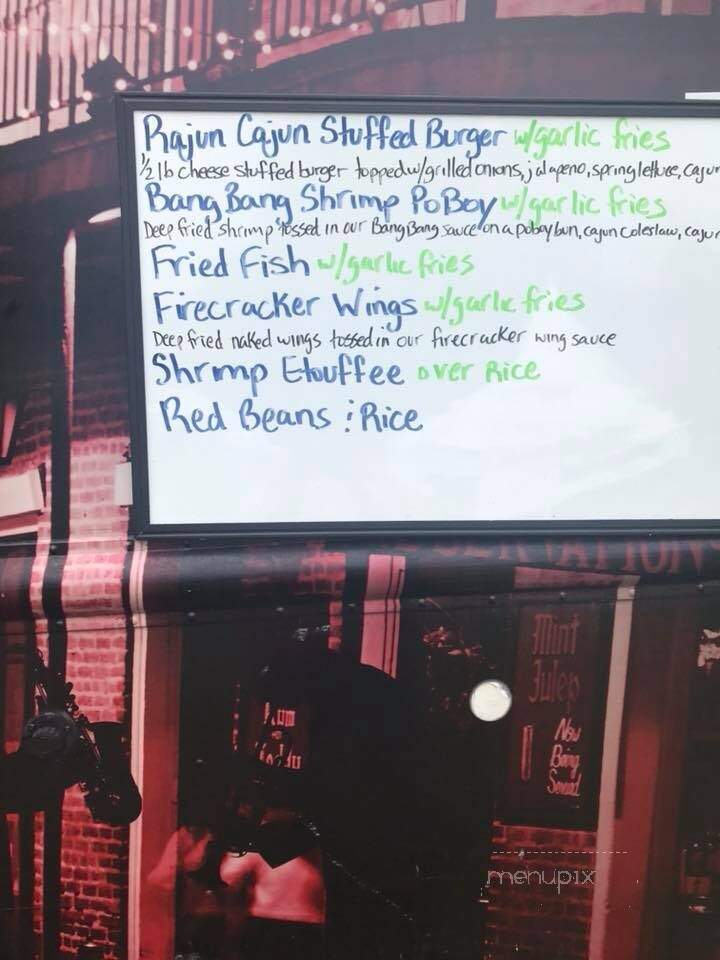 Rajun Cajun Stuffed Burger w/garlic fries
1/2 lb cheese stuffed burger topped w/grilled onions, jalapeno, spring lettuce, cajun
Bang Bang Shrimp PoBoy w/garlic fries
Deep fried shrimp tossed in our Bang Bang sauce on a poboy bun, cajun coleslaw, cajun
Fried Fish w/garlic fries
Firecracker Wings w/garlic fries
Deep fried naked wings tossed in our firecracker wing sauce
Shrmp Etouffee over Rice
Red Beans : Rice
Mint
Julep
Now
Being
Served
menupix